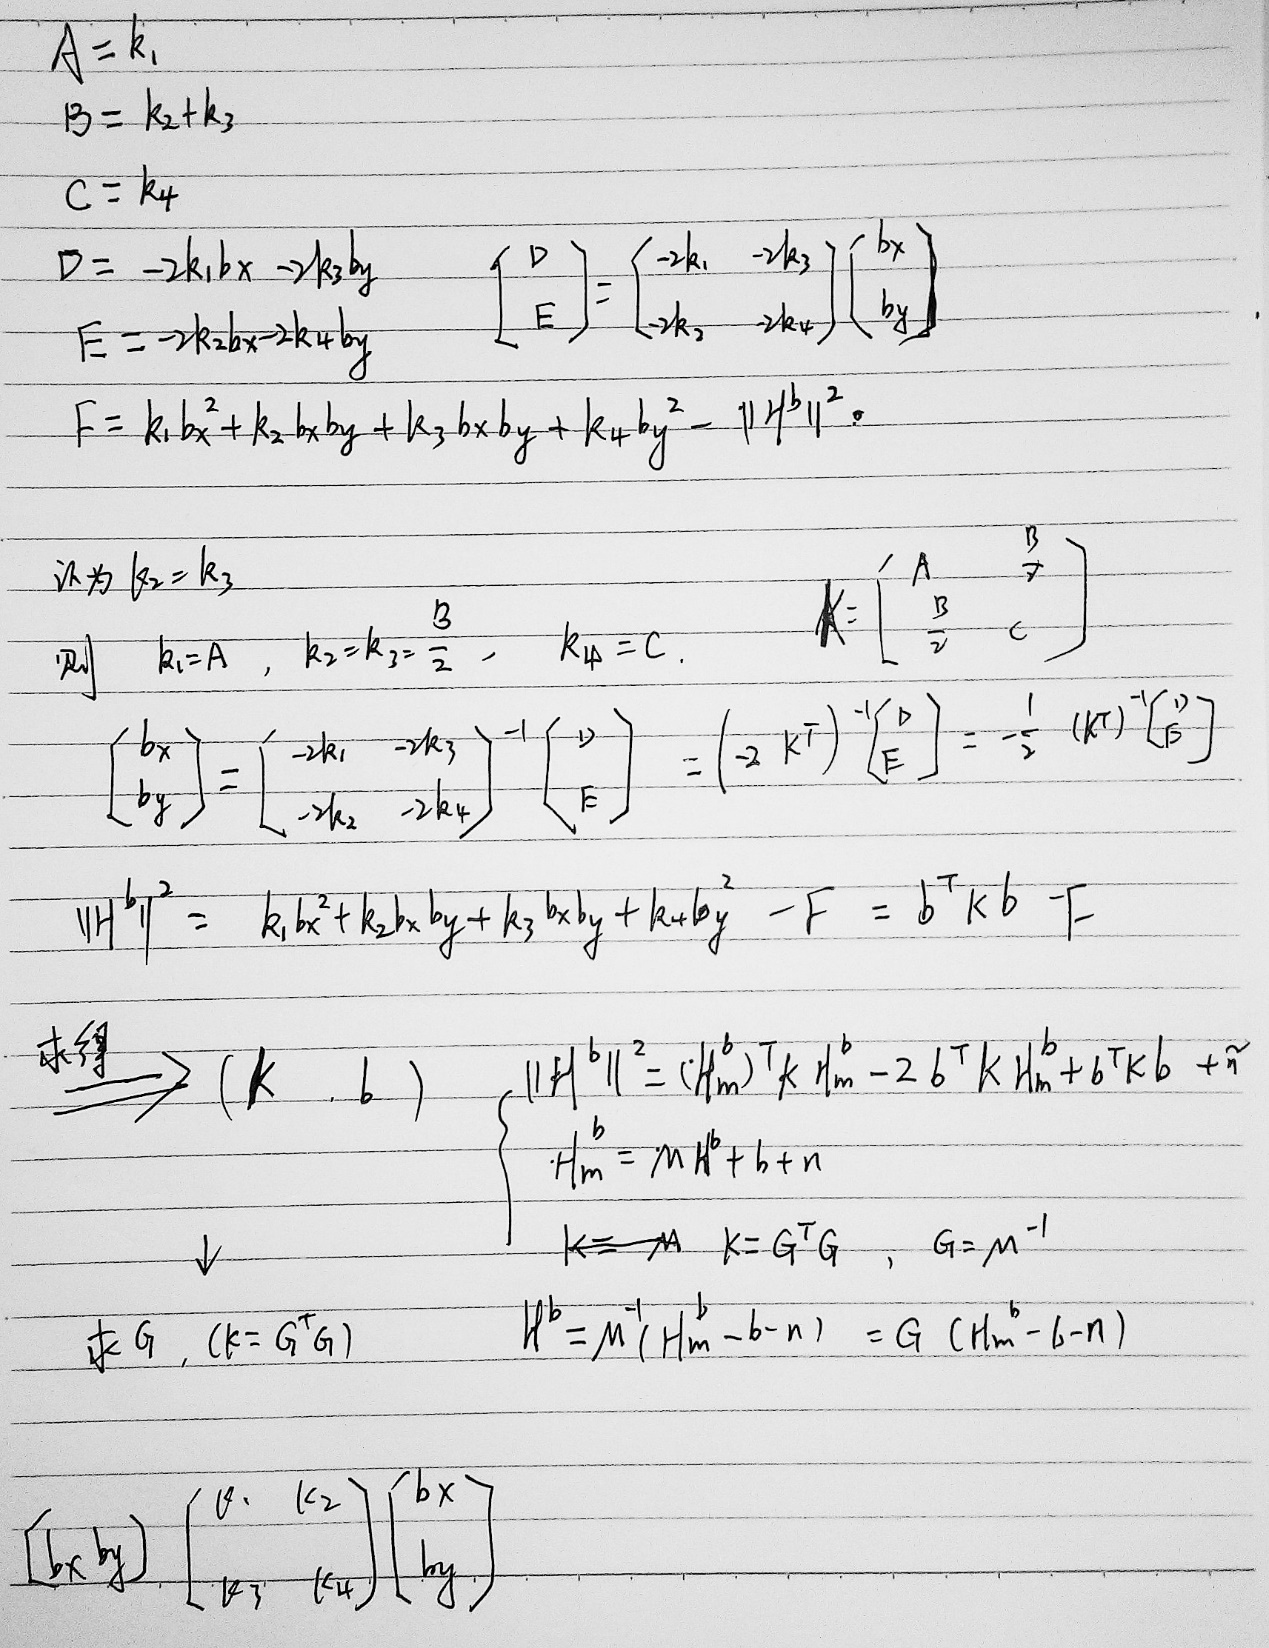 A = k₁
B = k₂+k₃
C = k₄
D = -2k₁bx -2k₃by
E = -2k₂bx-2k₄by
[D E] = [-2k₁ -2k₃ -2k₂ -2k₄] [bx by]
F = k₁bx²+k₂bxby+k₃bxby+k₄by² - ||Hᵇ||².
认为 k₂=k₃
则 k₁=A , k₂=k₃=B/2 , k₄=C.
K= [A B/2 B/2 C]
[bx by] = [-2k₁ -2k₃ -2k₂ -2k₄]⁻¹ [D E] = (-2 Kᵀ)⁻¹ [D E] = -1/2 (Kᵀ)⁻¹ [D E]
||Hᵇ||² = k₁bx²+k₂bxby+k₃bxby+k₄by² - F = bᵀKb - F
求得 ⟹ (K . b)
||Hᵇ||² = (Hₘᵇ)ᵀK Hₘᵇ - 2bᵀK Hₘᵇ + bᵀKb + ñ
Hₘᵇ = MHᵇ+b+n
K=GᵀG , G=M⁻¹
↓
求G , (K=GᵀG)
Hᵇ = M⁻¹(Hₘᵇ-b-n) = G (Hₘᵇ-b-n)
[bx by] [k₁ k₂ k₃ k₄] [bx by]